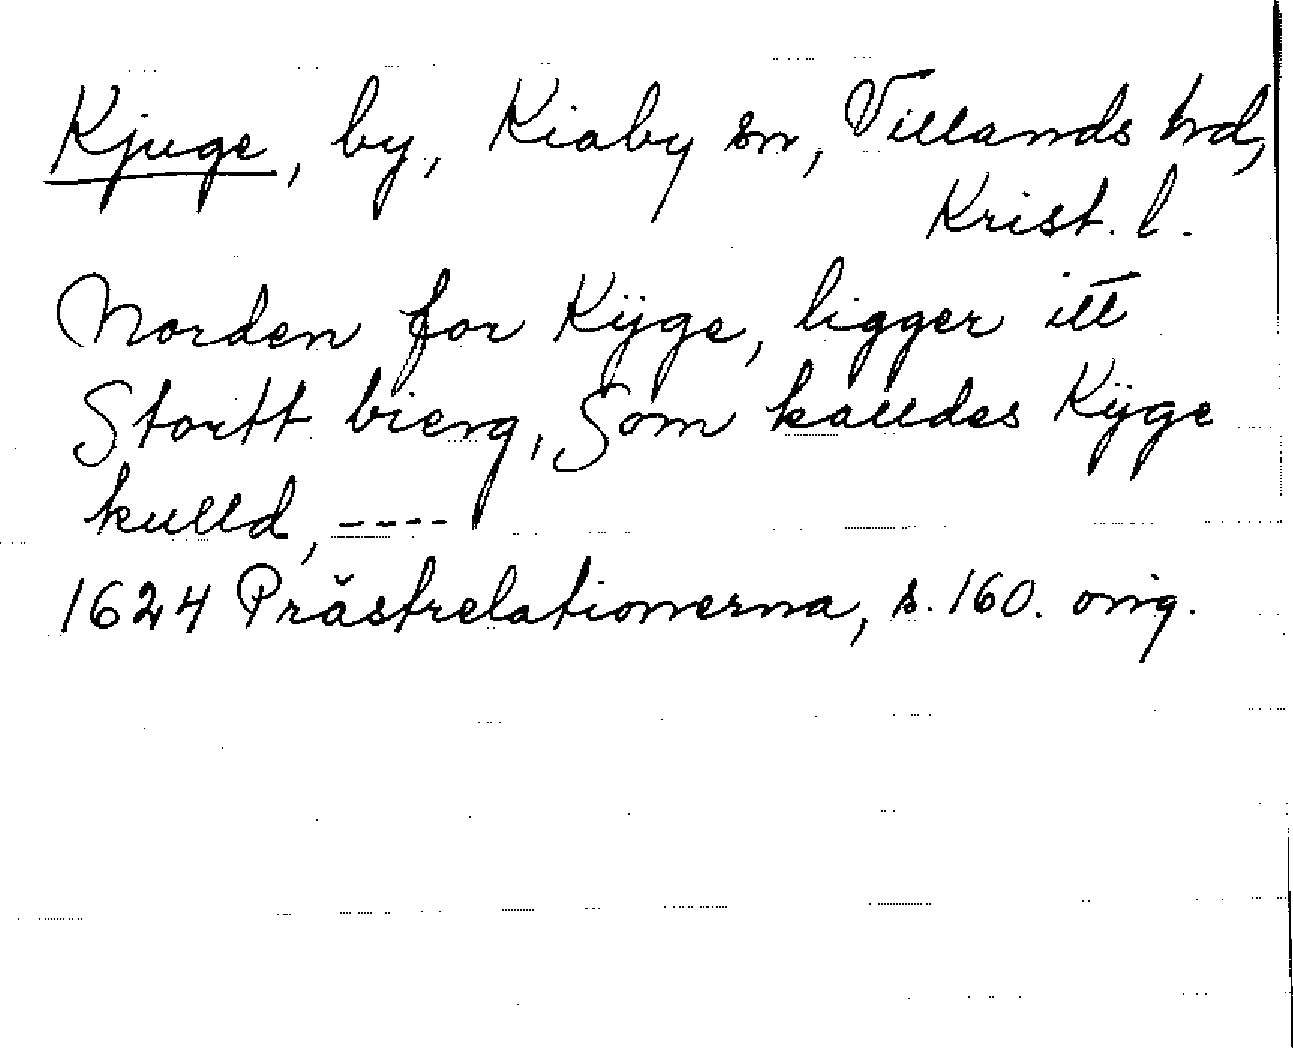 Kjuge, by, Kiaby sn, Villands hd,
Krist. l.
Norden for Kÿge, ligger itt
Stortt bierg, Som kalldes Kÿge
kulld, ----
1624 Prästrelationerna, s. 160. orig.